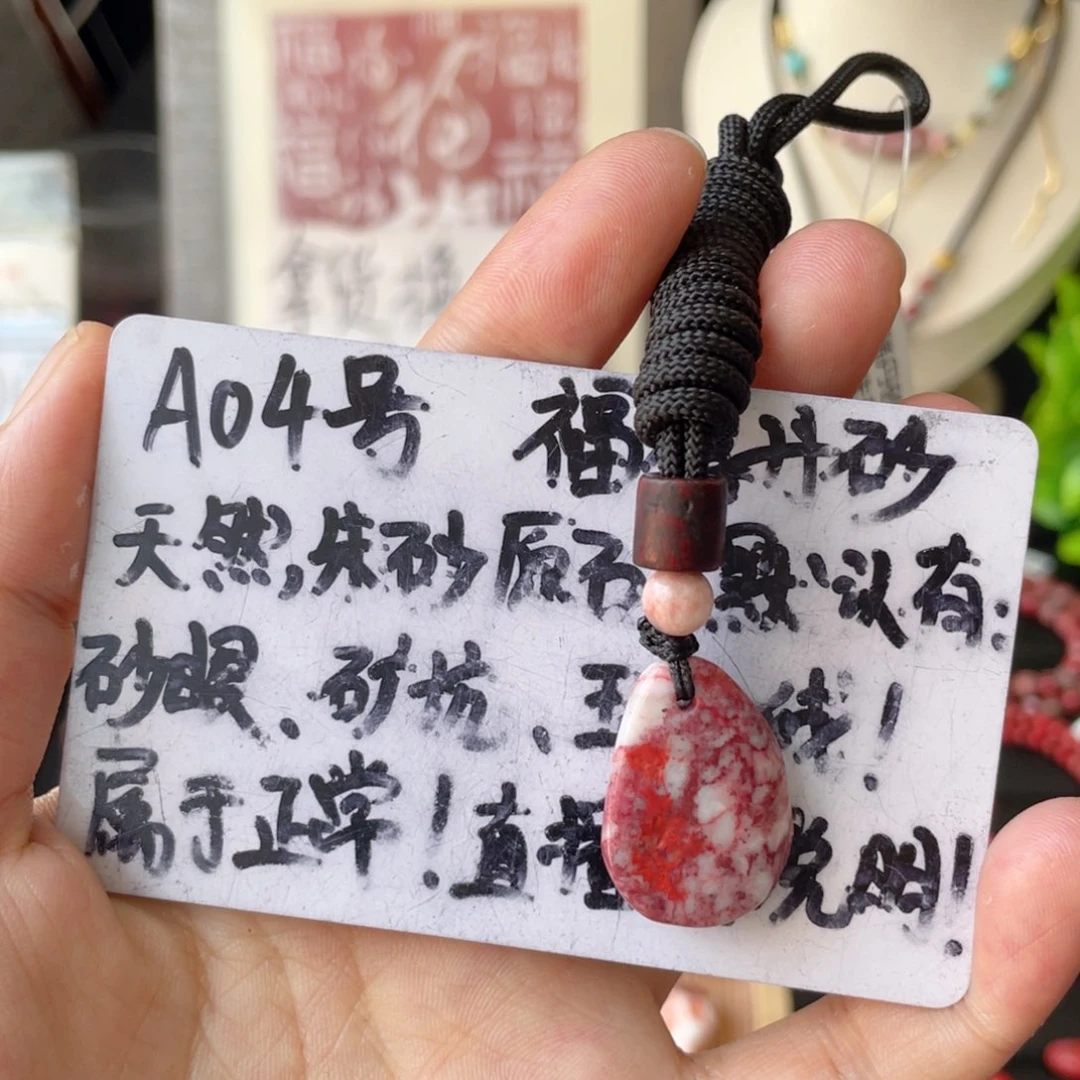 A04号 福 丹砂
天然,朱砂原石 默认有:
砂眼、矿坑、玉 线!
属于正常!直播 说明!
福